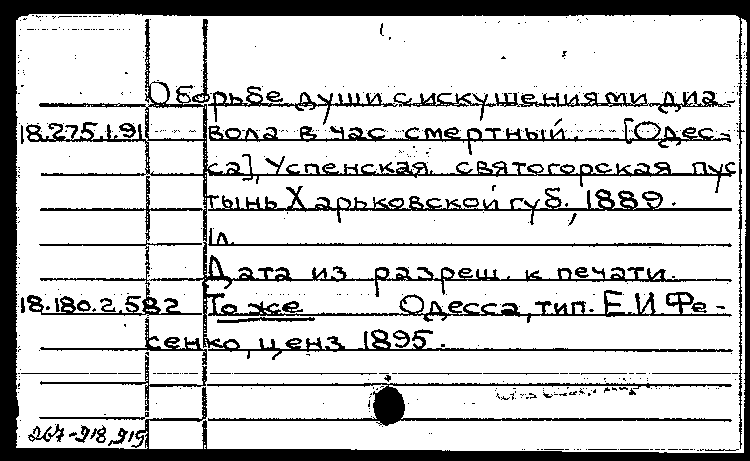 О борьбе души с искушениями диа-
18.275.1.91 вола в час смертный. [Одес-
са], Успенская святогорская пус
тынь Харьковской губ., 1889.
1л.
Дата из разреш. к печати.
18.180.2.582 То же Одесса, тип. Е.И.Фе-
сенко, ценз 1895.
267-918,919